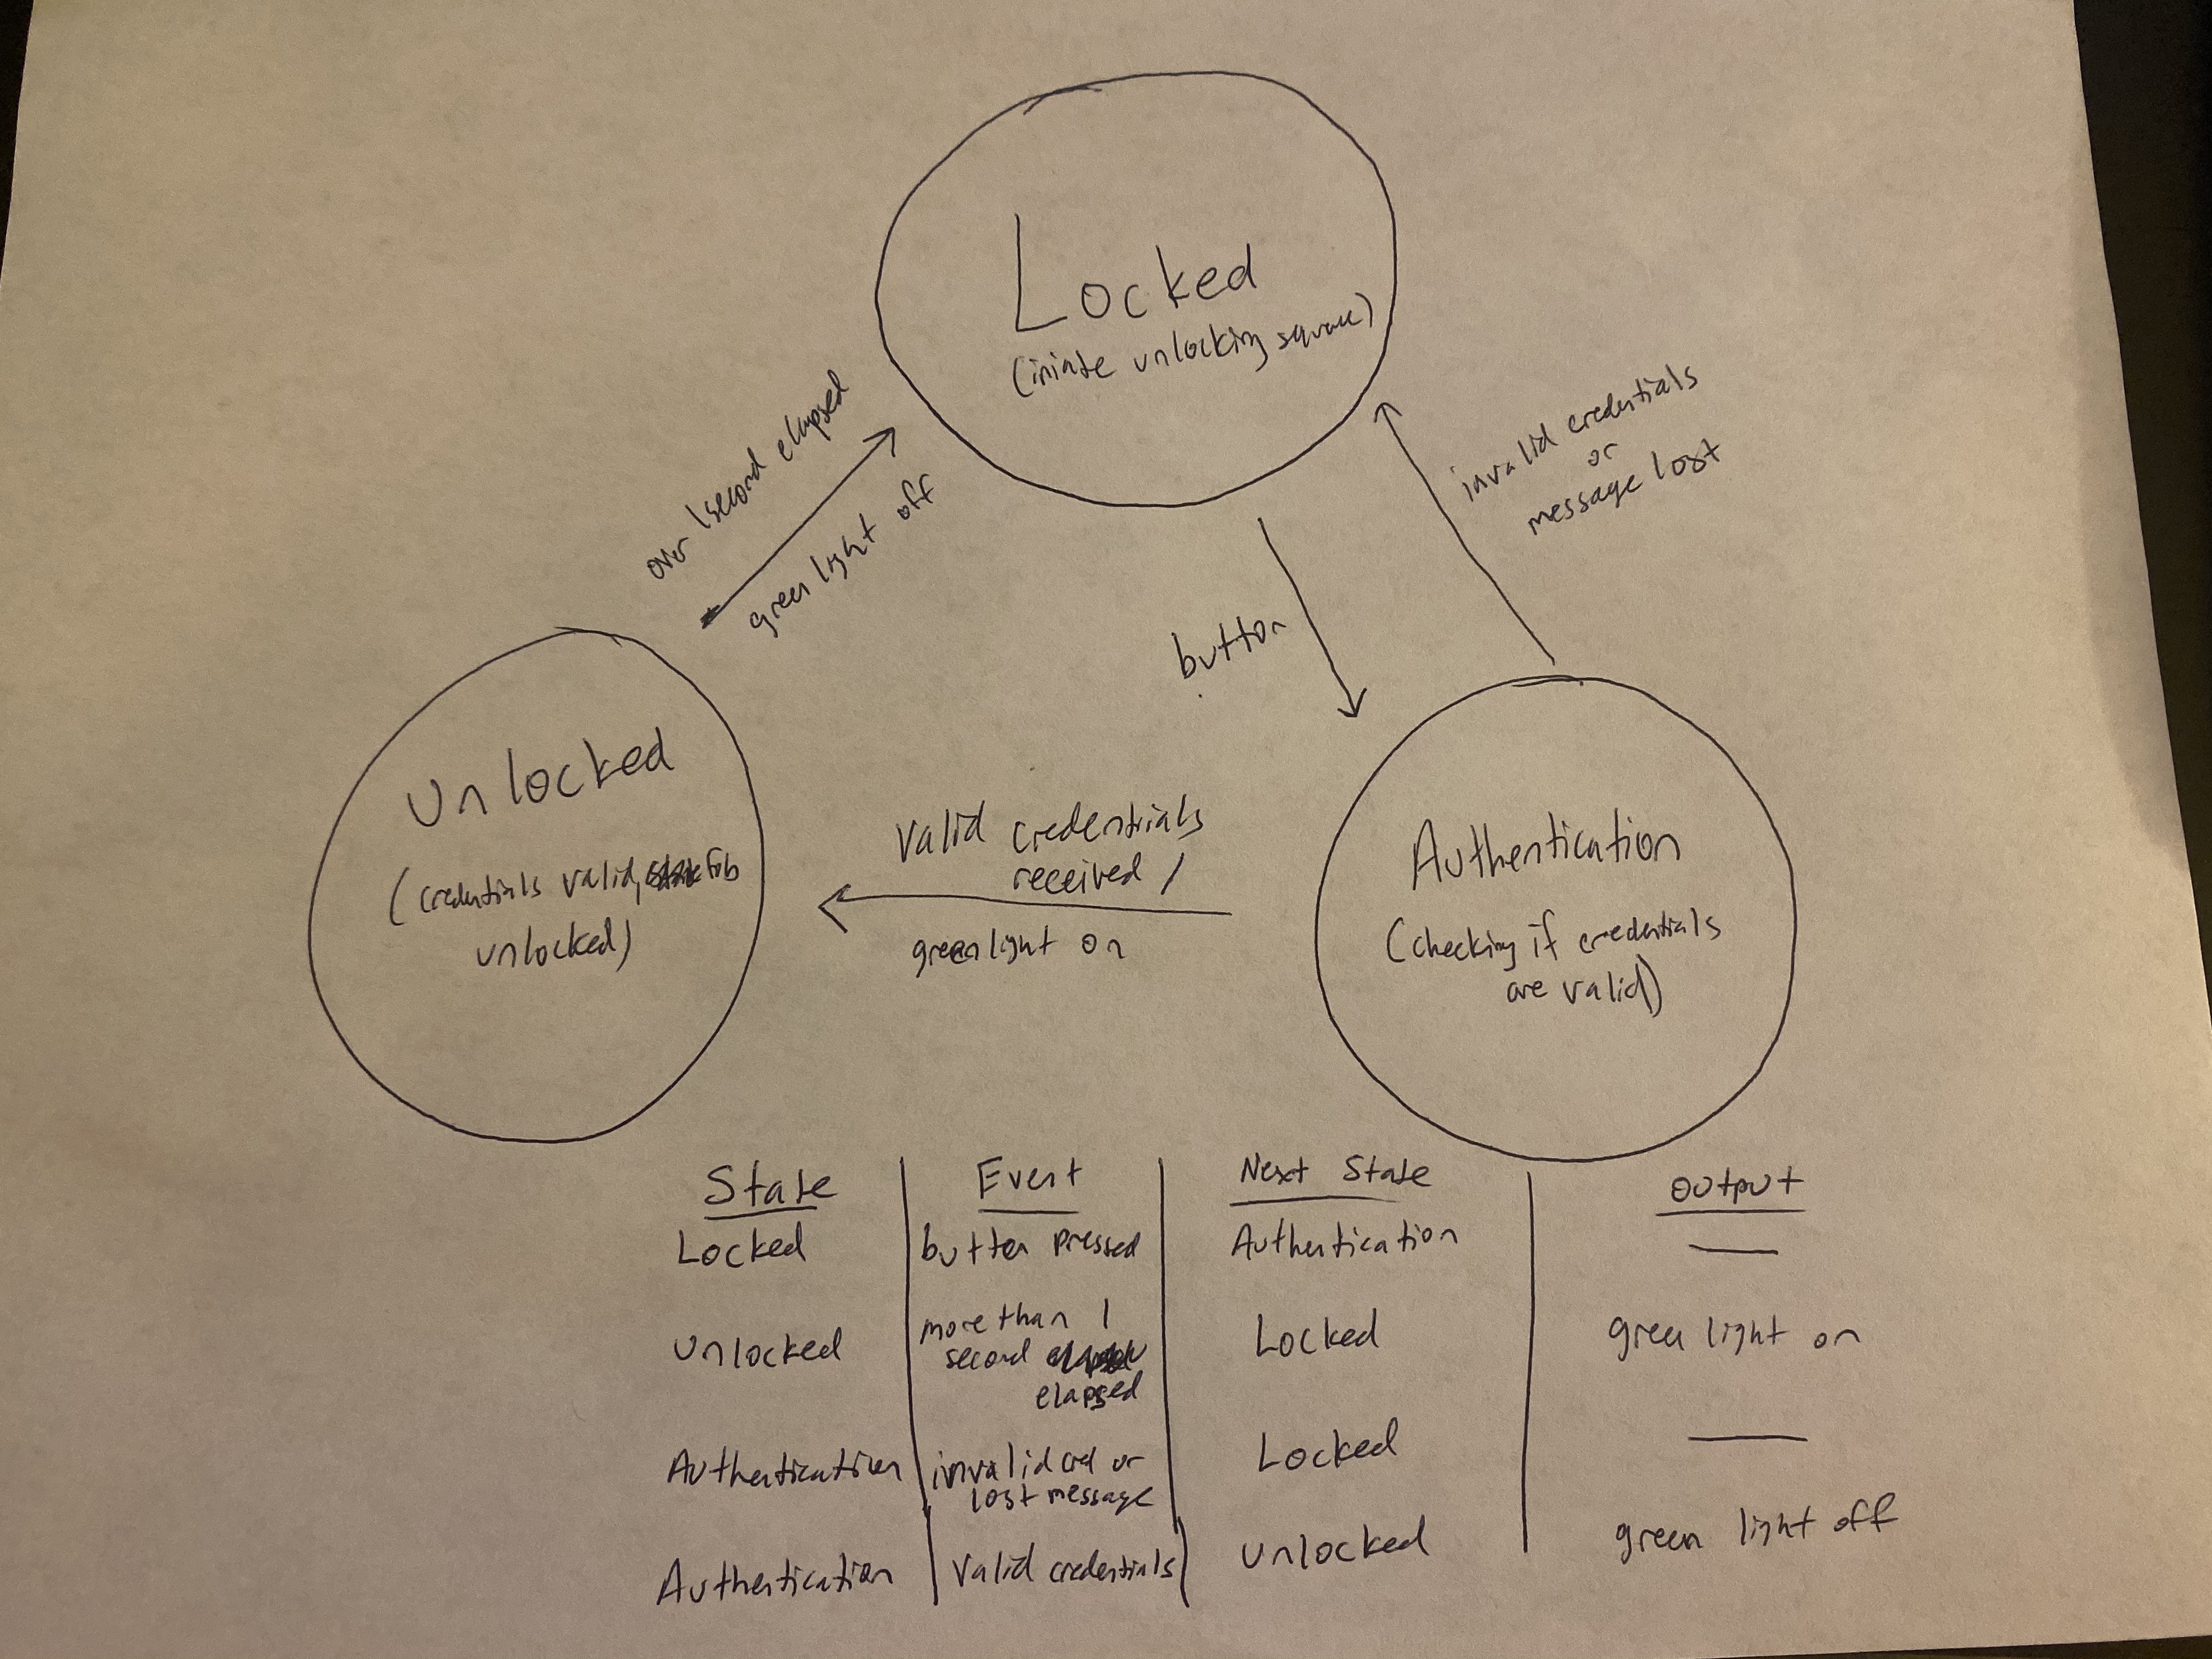 Locked
(iniate unlocking square)
over 1 second elapsed
green light off
invalid credentials
or
message lost
button
Unlocked
(credentials valid, fob
unlocked)
Valid credentials
received /
green light on
Authentication
(checking if credentials
are valid)
State Event Next State output
Locked button pressed Authentication —
Unlocked more than 1
second
elapsed Locked green light on
Authentication invalid cred or
lost message Locked —
Authentication Valid credentials unlocked green light off